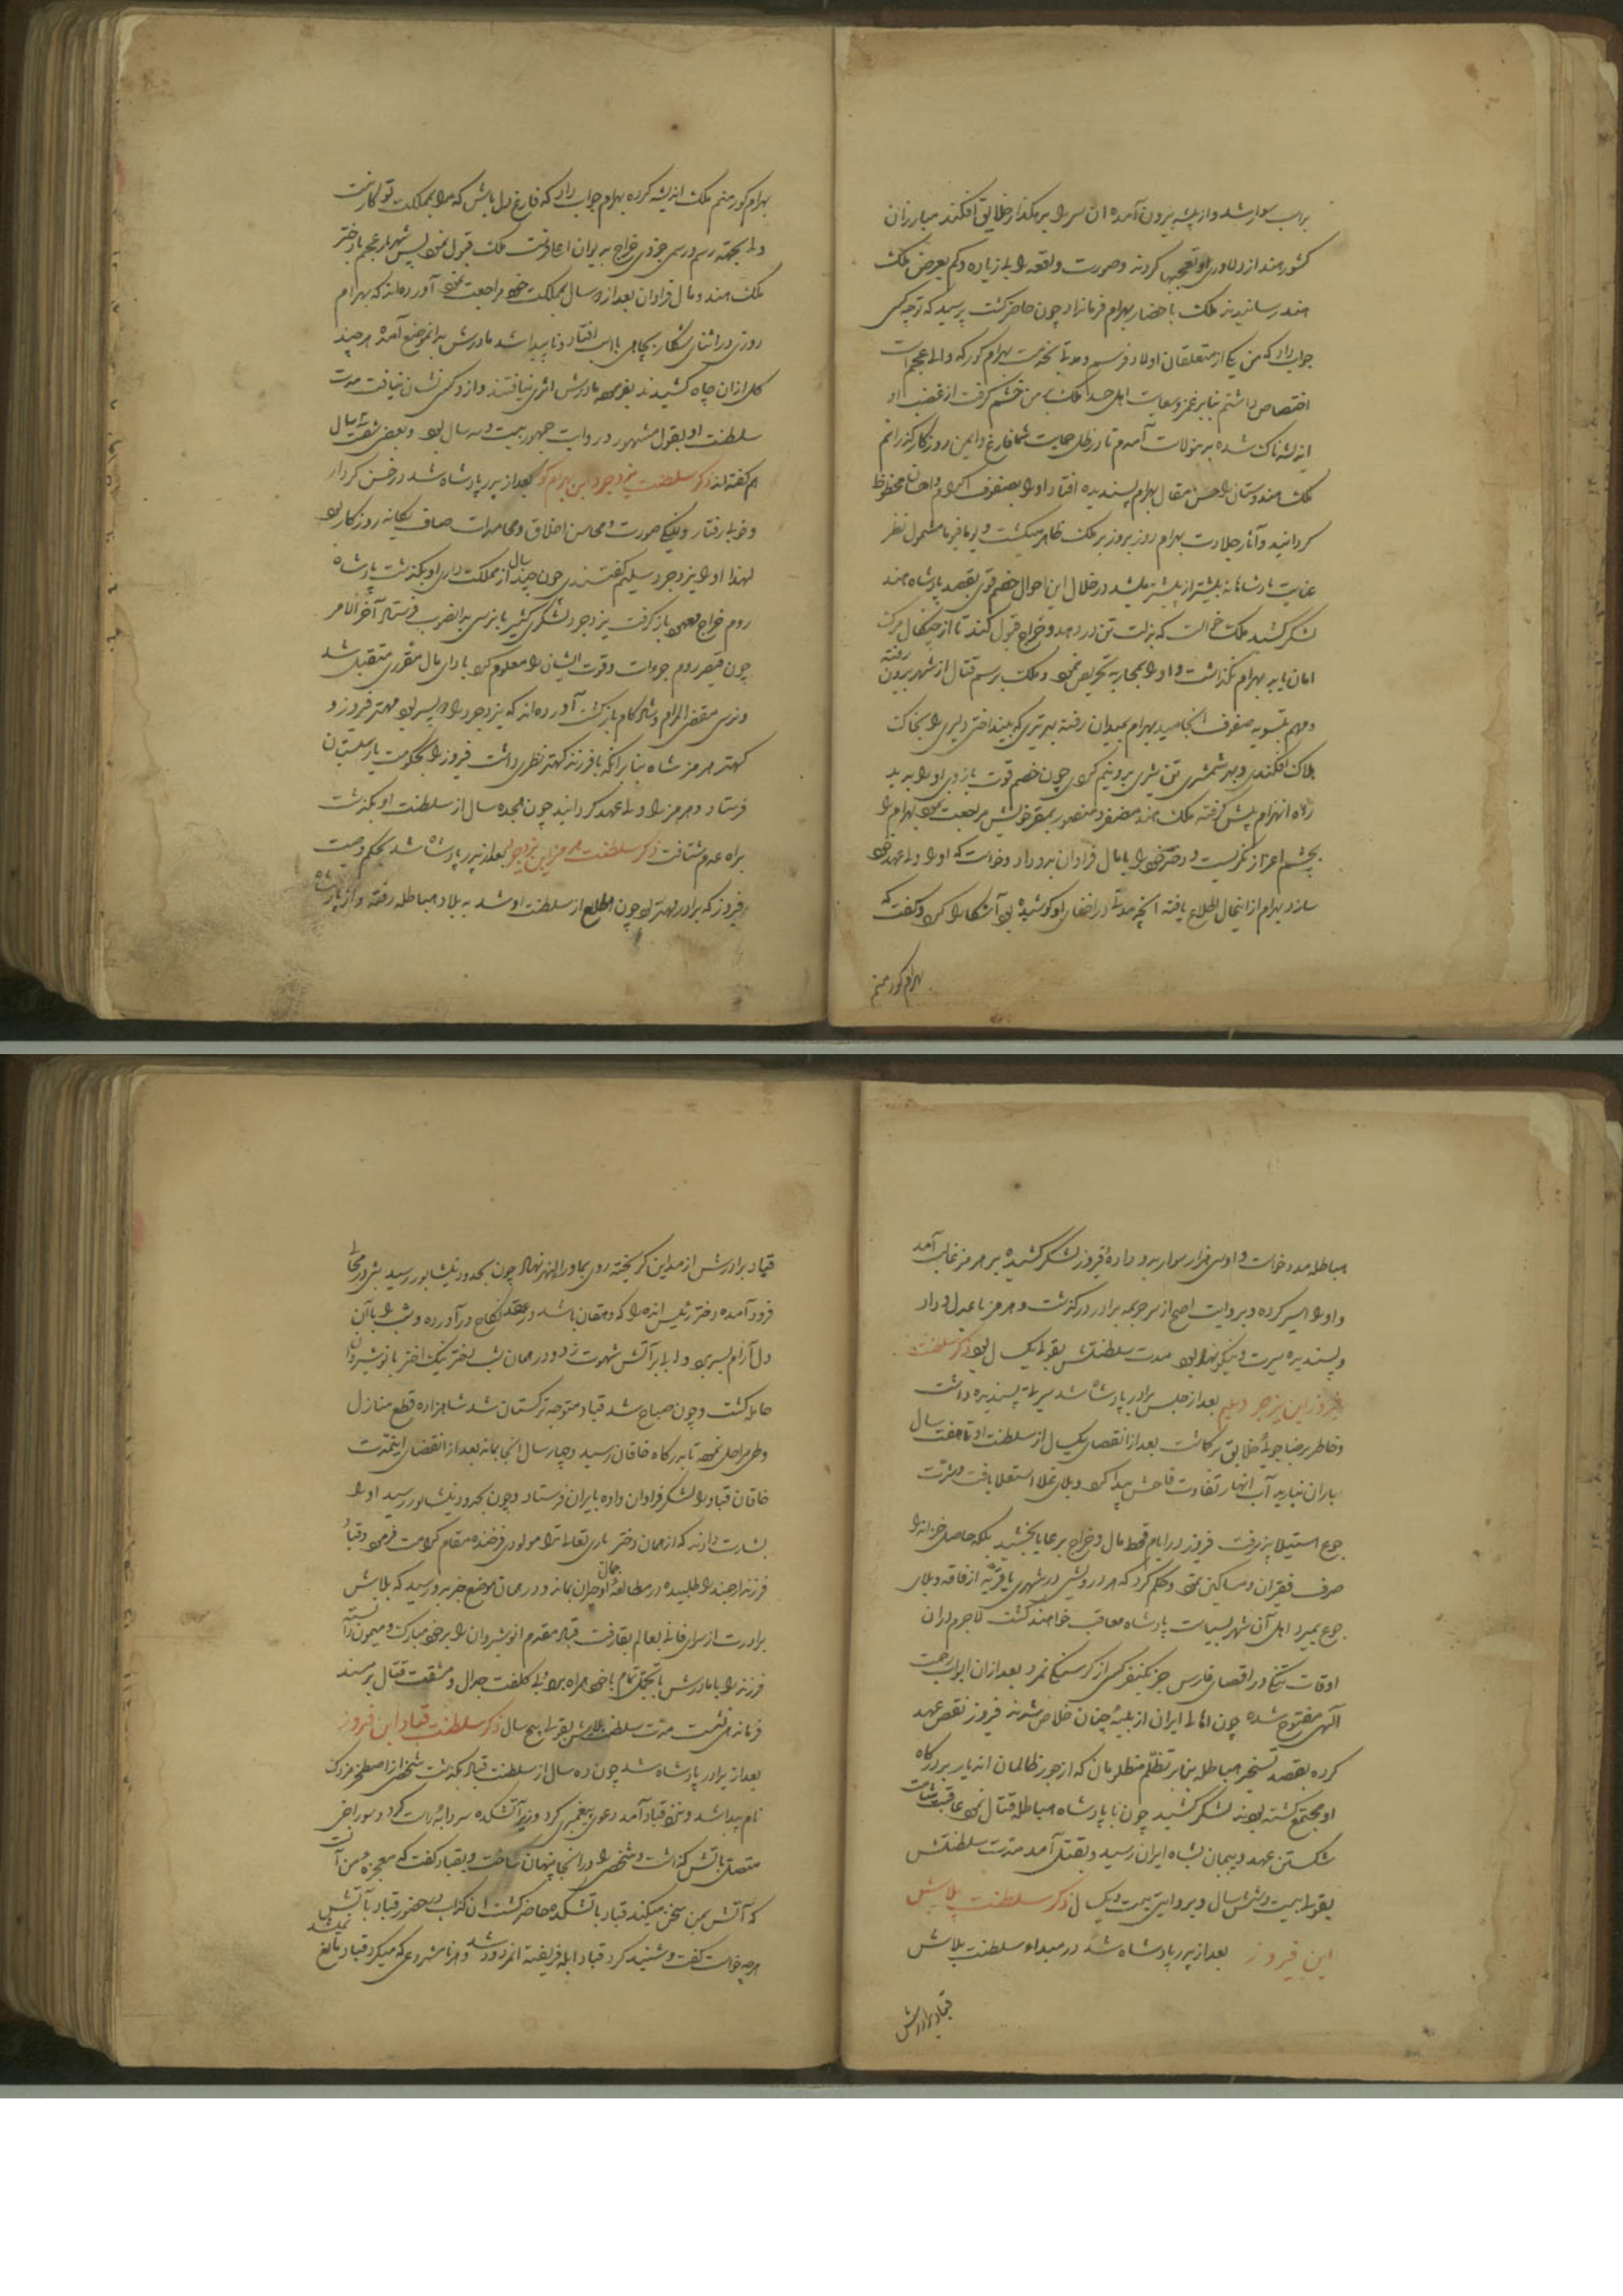 براسب سوار شد و از بیشه بیرون آمده آن سر را بر رهگذار خلایق افکند مبارزان
کشور هند از دلاوری او تعجبها کردند و صورت واقعه را بی زیاده و کم بعرض ملک
هند رسانیدند ملک باحضار بهرام فرمان داد چون حاضر گشت پرسید که تو چه کسی
جواب داد که من یکی از متعلقان اولاد فرسم و مدتی بخدمت بهرام کور که والی عجم است
اختصاص داشتم بنابر غمز و سعایت اهل حسد ملک بر من خشم گرفت از غضب او
اندیشناک شده بدین ولایت آمدم تا در ظل حمایت شما فارغ و ایمن روزکار گذرانم
ملک هندوستان را حسن مقال بهرام پسندیده افتاد او را بصنوف اکرام و احسان محظوظ
گردانید و آثار جلادت بهرام روز بروز بر ملک ظاهر میگشت و یوما فیوما مشمول نظر
عنایت پادشاهانه بیشتر از پیشتر میشد در خلال این احوال خصم قوی بقصد پادشاه هند
لشکر کشید ملک خواست که بذلت تن در دهد و خراج قبول کند تا از چنگال مرگ
امان یابد بهرام نگذاشت و او را بمحاربه تحریص نمود و ملک برسم قتال از شهر بیرون رفته
و مهم بتسویه صفوف انجامید بهرام بمیدان رفته بهر تیری که بینداختی دلیری را بخاک
هلاک افکندی و بهر شمشیری تن بشری بدو نیم کردی چون خصم قوت بازوی او را بدید
راه انهزام پیش گرفته ملک هند مظفر و منصور بمقر خویش مراجعت نمود بهرام را
بچشم اعزاز نگریست و دختر خود را با مال فراوان بدو داد و خواست که او را ولی عهد خود
سازد بهرام از اینحال اطلاع یافته آنچه مدتی در اخفای او کوشیده بود آشکارا کرد و گفت که
بهرام کور منم
بهرام کور منم ملک اندیشه کرده بهرام جواب داد که فارغ دل باش که مرا بمملکت تو کار نیست
ولی بجهة رسم ورسی جزوی خراج بدیوان ما باید فرستاد ملک قبول نمود پس شهریار عجم با دختر
ملک هند و مال فراوان بعد از دو سال بمملکت خود مراجعت نمود آورده اند که بهرام
روزی در اثنای شکار بچاهی با اسب افتاد و ناپیدا شد مادرش بدان موضع آمده هر چند
گل از ان چاه کشیدند بفرموده مادرش اثری نیافتند و از و کسی نشان نیافت مدت
سلطنت او بقول مشهور در روایت جمهور بیست و سه سال بود و بعضی شصت سال
هم گفته اند ذکر سلطنت یزدجرد ابن بهرام کور بعد از پدر پادشاه شد در حسن کردار
و خوبی رفتار و نیکی صورت و محاسن اخلاق و محامد اوصاف یگانه روزگار بود
لهذا او را یزدجرد سلیم گفتندی چون چند سال از مملکت داری او بگذشت پادشاه
روم خراج معهود باز گرفت یزدجرد لشکری کثیر با نرسی بدانصوب فرستاد آخر الامر
چون قیصر روم جرءات و قوت ایشان را معلوم کرد بادای مال مقرری متقبل شد
و نرسی مقضی المرام و شاد کام بازگشت آورده اند که یزدجرد را دو پسر بود مهتر فیروز و
کهتر هرمز شاه بنابر آنکه با فرزند کهتر نظری داشت فیروز را بحکومت سیستان
فرستاد و هرمز را ولی عهد گردانید چون هجده سال از سلطنت او بگذشت
براه عدم شتافت ذکر سلطنت هرمز ابن یزدجرد بعد از پدر پادشاه شد بحکم وصیت
فیروز که برادر مهتر بود چون مطلع از سلطنت او شد به بلاد هیاطله رفته و از پادشاه
هیاطله مدد خواست و او سی هزار سوار بدو داده فیروز لشکر کشیده بر هرمز غالب آمد
و او را اسیر کرده و بروایت اصح از سر جریمه برادر در گذشت و هرمز با عدل و داد
و پسندیده سیرت و نیکو نهاد بود مدت سلطنتش بقولی یک سال بود ذکر سلطنت
فیروز ابن یزدجرد سلیم بعد از حبس برادر پادشاه شد سیرتی پسندیده داشت
و خاطر بر رضا جوئی خلایق بر گماشت بعد از انقضای یکسال از سلطنت او تا هفت سال
باران نبارید آب انهار تفاوت فاحش پیدا کرد و بلای غلا استعلا یافت و شدت
جوع استیلا پذیرفت فیروز در ایام قحط مال و خراج برعایا بخشید بلکه حاصل خزانه را
صرف فقیران و مساکین نمود و حکم کرد که هر درویشی در شهری یا قریه از فاقه و بلای
جوع بمیرد اهل آن شهر بسیاست پادشاه معاقب خواهند گشت لاجرم در ان
اوقات تنگی در اقصای فارس جز یکنفر کسی از گرسنگی نمرد بعد از ان ابواب رحمت
الهی مفتوح شده چون اهالی ایران از بلیه چنان خلاص شدند فیروز نقض عهد
کرده بقصد تسخیر هیاطله بنابر تظلم مظلومان که از جور ظالمان ان دیار بدرگاه
او مجتمع گشته بودند لشکر کشید چون با پادشاه هیاطله قتال نمود عاقبت شآمت
شکستن عهد و پیمان بشاه ایران رسید و بقتل آمد مدت سلطنتش
بقولی بیست و شش سال و بروایتی بیست و یک سال ذکر سلطنت بلاش
ابن فیروز بعد از پدر پادشاه شد در مبداء سلطنت بلاش
قباد برادرش
قباد برادرش از مداین گریخته روی بماوراالنهر نهاد چون بحدود نیشابور رسید شبی در محلی
فرود آمده دختر رئیس آنده را که دهقان باشد در عقد نکاح در آورده و شب را با آن
دل آرام بسر برد و آبی بر آتش شهوت زد و در همان شب دختر نیک اختر بانوشیروان
حامله گشت و چون صباح شد قباد متوجه ترکستان شد شاهزاده قطع منازل
و طی مراحل نمود تا بدرگاه خاقان رسید و چهار سال آنجا بماند بعد از انقضای اینمدت
خاقان قباد را لشکر فراوان داده بایران فرستاد و چون بحدود نیشابور رسید او را
بشارت دادند که از همان دختر باری تعالی ترا مولودی فرخنده مقدم کرامت فرمود و قباد
فرزند ارجمند را طلبیده در مطالعه جمال او حیران بماند و در همان موضع خبر بدو رسید که بلاش
برادرت از سرای فانی بعالم بقا رفت قباد مقدم انوشیروان را بر خود مبارک و میمون دانسته
فرزند را با مادرش بتجمل تمام با خود همراه برد و بی کلفت جدال و مشقت قتال بر مسند
فرماندهی نشست مدت سلطنت بلاش بقولی پنج سال ذکر سلطنت قباد ابن فیروز
بعد از برادر پادشاه شد چون ده سال از سلطنت قباد بگذشت شخصی از اصطخر مزدک
نام پیدا شد و نزد قباد آمد دعوی پیغمبری کرد و زیر آتشکده سردابه راست کرد و سوراخی
متصل بآتش گذاشت و شخصی را در انجا پنهان ساخت و بقباد گفت که معجزه من آنست
که آتش بمن سخن میکند قباد بآتشکده حاضر گشت آن کذاب در حضور قباد بآتش
هر چه خواست گفت و شنید کرد قباد ابله فریفته آنمردود شد و هر نامشروعی که میکرد قباد مانع نمیشد